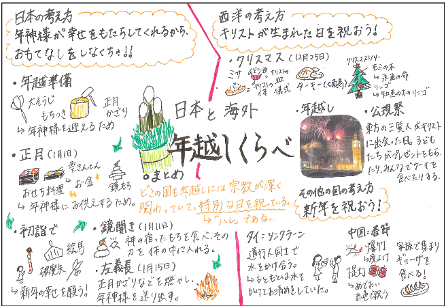 日本の考え方
年神様が幸せをもたらしてくれるから、
おもてなしをしなくちゃ!!
・年越準備
大そうじ
もちつき
正月
かざり
↳年神様を迎えるため
・正月(1月1日)
おせち料理
お金
鏡もち
↳年神様にお供えするため。
・初詣で
絵馬
↳新年の幸を願う!
・鏡開き(1月11日)
神の宿ったもちを食べ、その
力を体の中に入れる。
・左義長(1月15日)
正月かざりなどを燃やし、
年神様を送り出す。
日本と海外
年越しくらべ
・まとめ
どこの国も年越しには宗教が深く
関わっていて、特別な日を祝している。
西洋の考え方
キリストが生まれた日を祝おう!
・クリスマス(12月25日)
ミサ
ターキー
クリスマスツリー
もみの木
リンゴ
・年越し
・公現祭
東方の三賢人がキリスト
に出会った日。子ども
たちがプレゼントをもら
その他の国の考え方
新年を祝おう!
タイ:ソンクラーン
道行く人同士で
水をかけ合う。
中国:春節
爆竹
家族で集まり
ギョーザを
食べる!